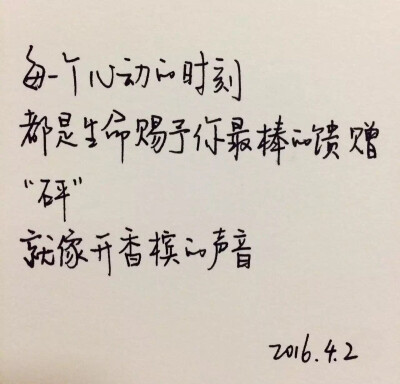 每一个心动的时刻
都是生命赐予你最棒的馈赠
“砰”
就像开香槟的声音
2016.4.2